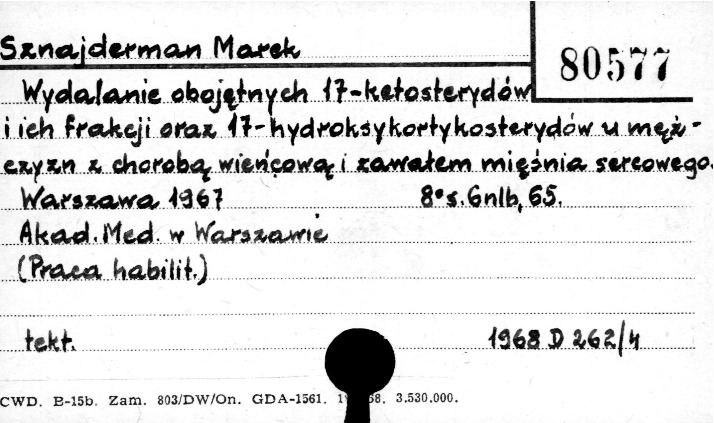 Sznajderman Marek
80577
Wydalanie obojętnych 17-ketosterydów
i ich frakcji oraz 17-hydroksykortykosterydów u męż-
czyzn z chorobą wieńcową i zawałem mięśnia sercowego.
Warszawa 1967 8° s. 6nlb, 65.
Akad. Med. w Warszawie
(Praca habilit.)
tekt. 1968 D 262/4
CWD. B-15b. Zam. 803/DW/On. GDA-1561. 3.530.000.